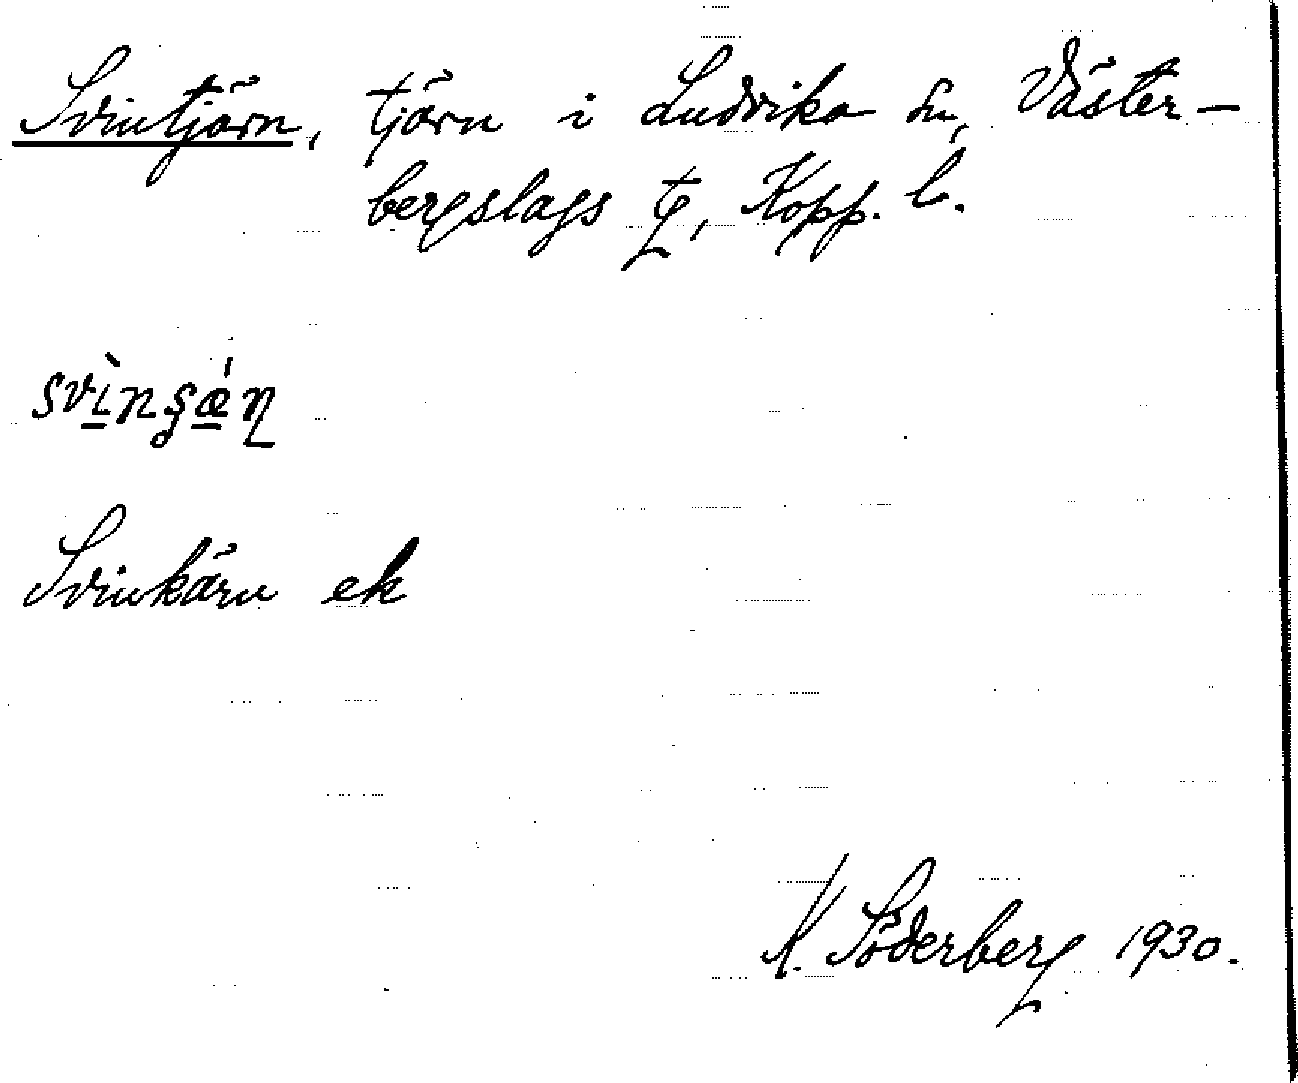 Svintjärn, tjärn i Ludvika sn, Väster-
bergslags tg, Kopp. l.
svìnʂǽɳ
Svinkärn ek
K. Söderberg 1930.